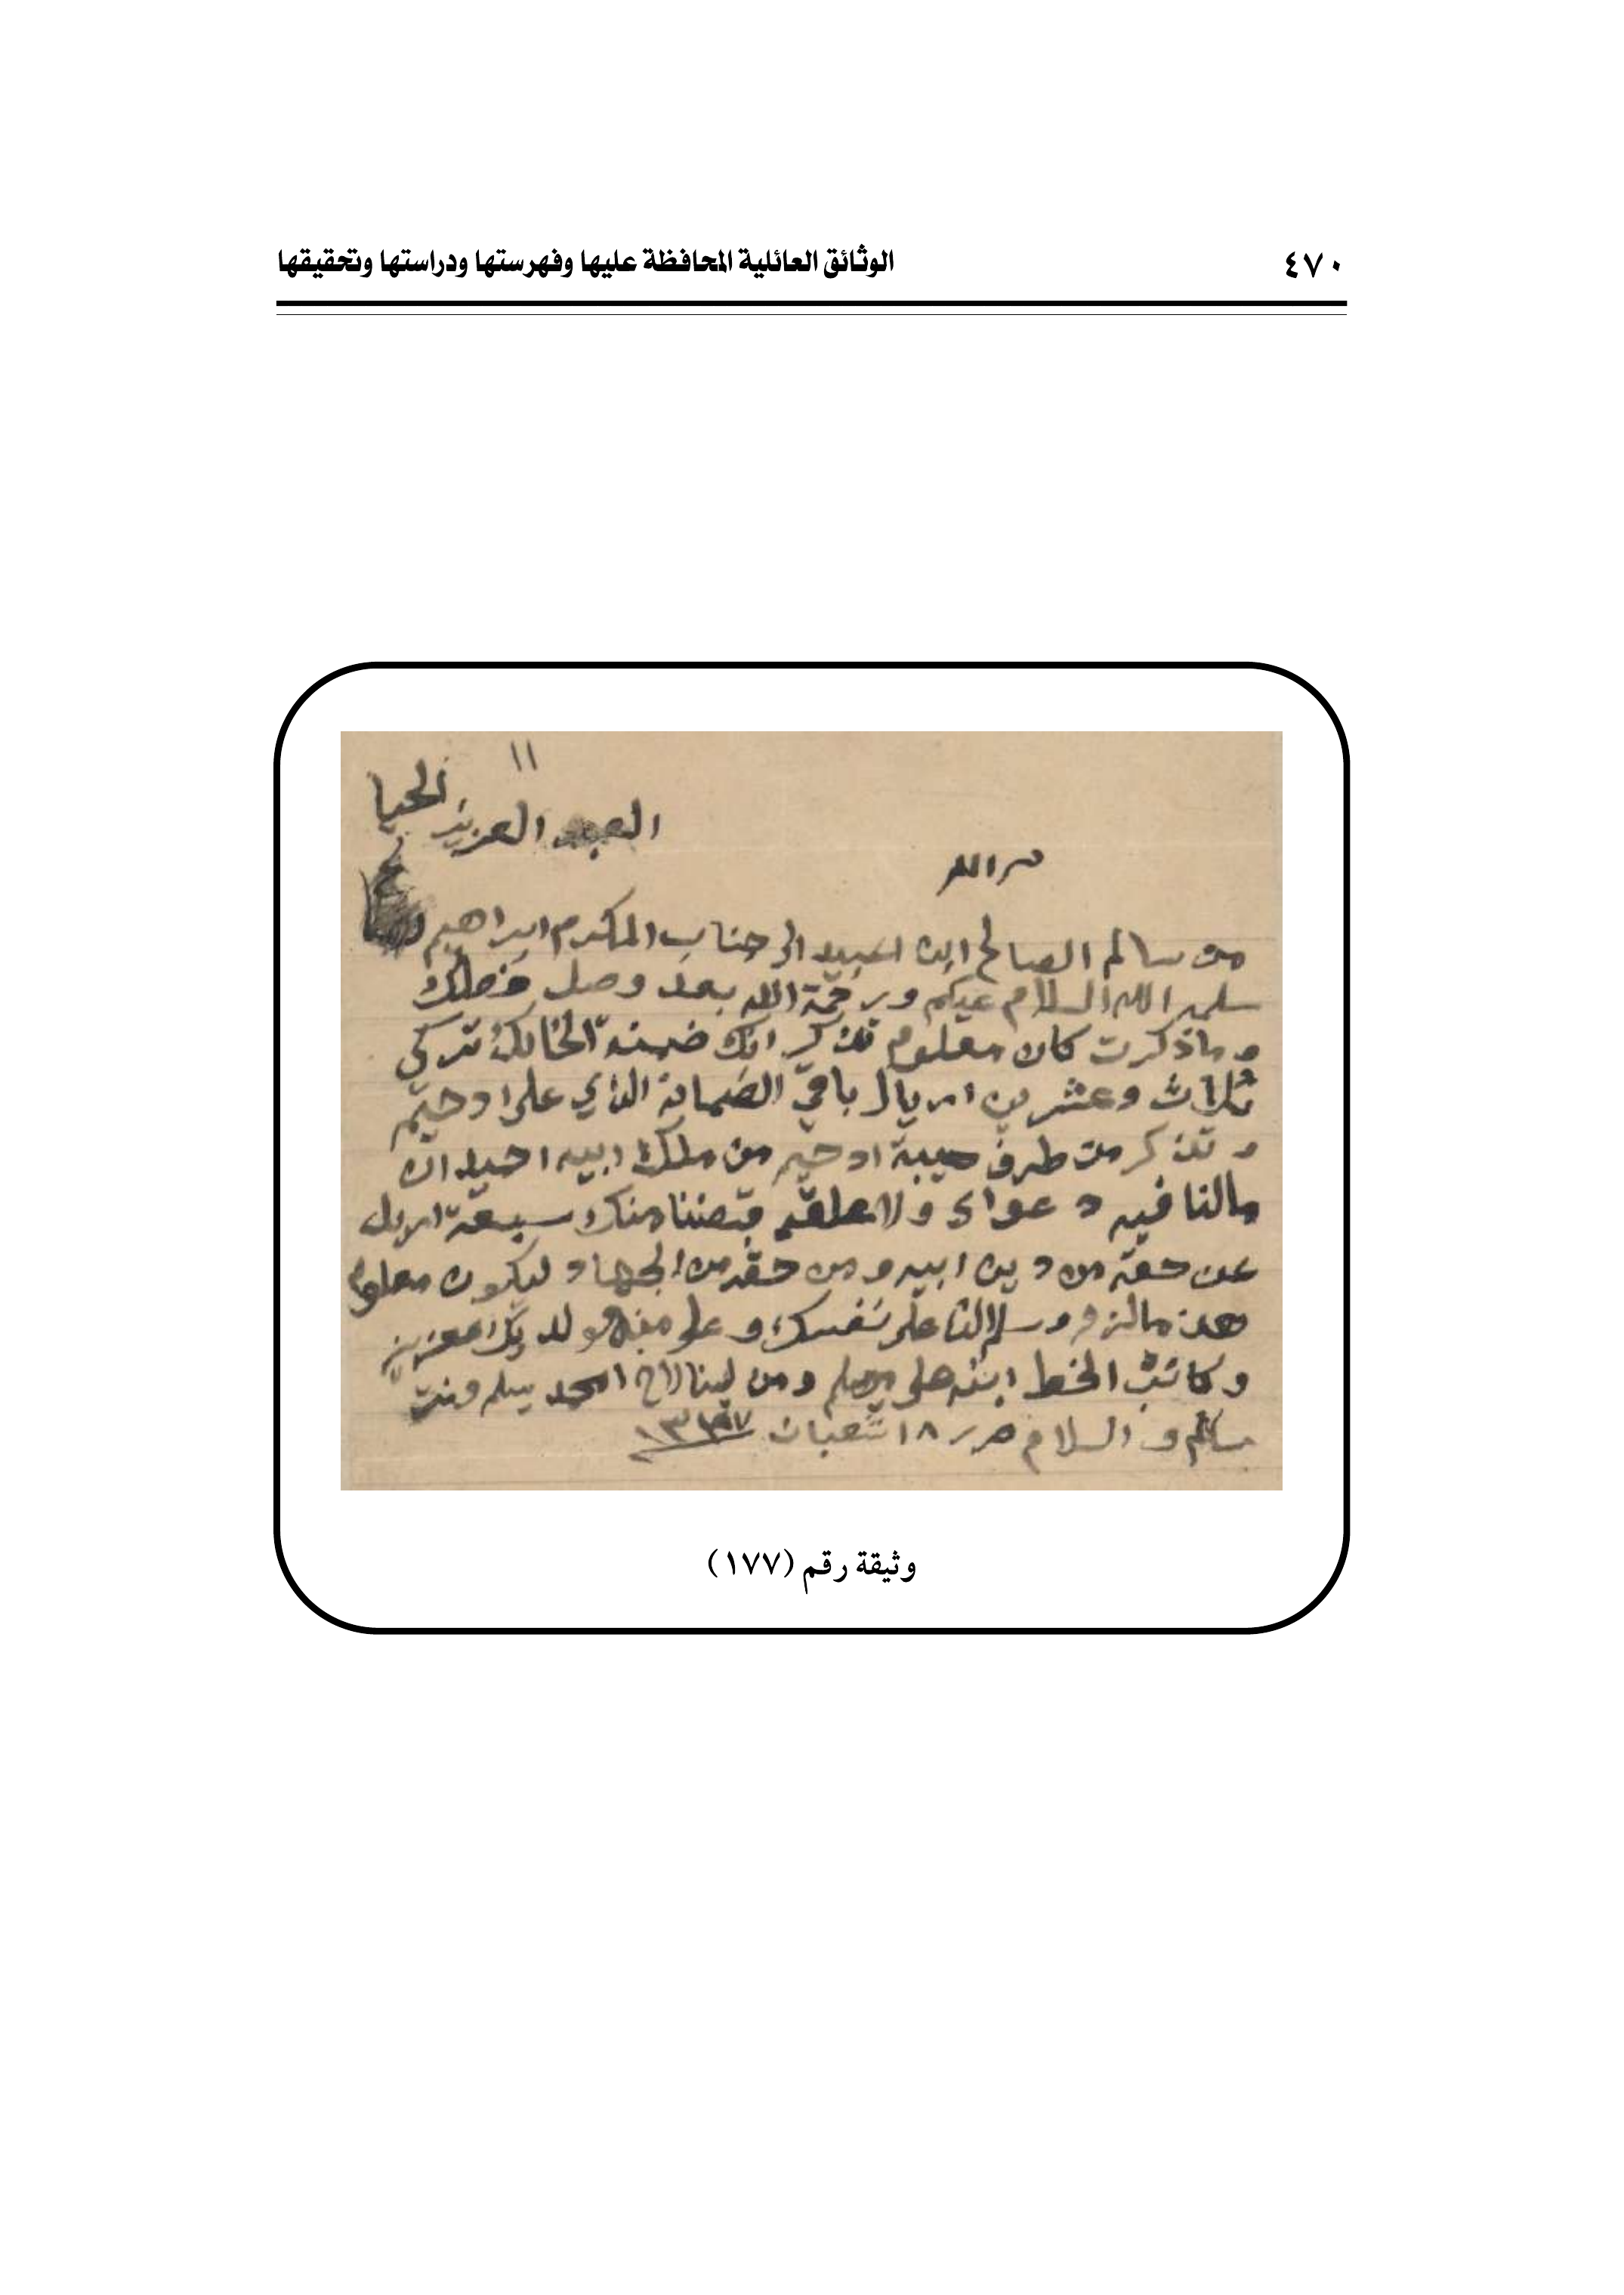 ٤٧٠
الوثائق العائلية المحافظة عليها وفهرستها ودراستها وتحقيقها
١١
العبد العزيز المحيا
من سالم الصالح ابن اعبيد الى جناب المكرم ابراهيم
سلمه الله السلام عيكم ورحمة الله بعد وصل خطك
وماذكرت كان معلوم تذكر انك ضمنة الخالك تركي
ثلاث وعشرين اريال باقي الضمانة الذي على ادحيم
وتذكر من طرف صيبة ادحيم من ملك ابيه احميد ان
مالنا فيه دعواى ولا علقه قبضنا منك سبعة اريل
عن حقه من دين ابيه ومن حقه من الجهاد ليكون معلوم
هذ مالزم وسلم لنا على نفسك وعلى ولديك عزيز
وكاتب الخط ابنه على يسلم ومن لينا الاخ احمد يسلم ونت
سالم و السلام حرر ١٨ شعبان ١٣٣٧
وثيقة رقم (١٧٧)